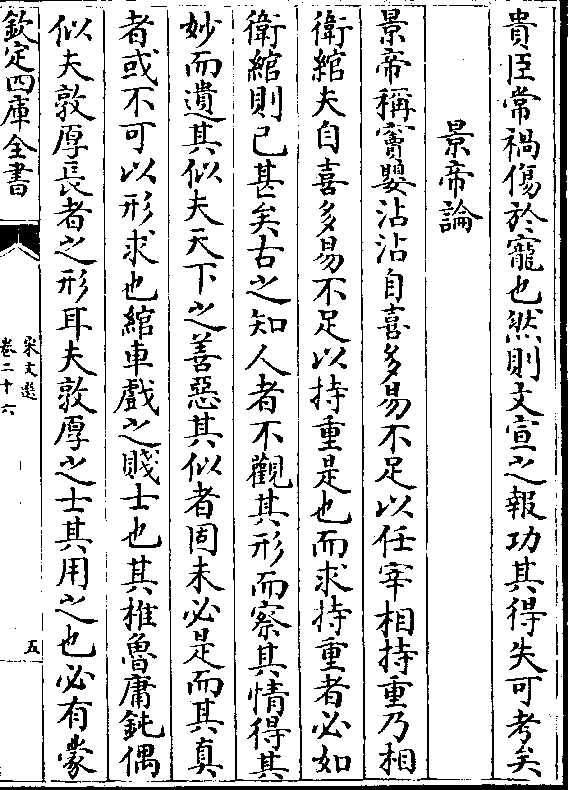 貴臣常禍傷於寵也然則文宣之報功其得失可考矣
景帝論
景帝稱竇嬰沾沾自喜多易不足以任宰相持重乃相
衛綰夫自喜多易不足以持重是也而求持重者必如
衛綰則已甚矣古之知人者不觀其形而察其情得其
妙而遺其似夫天下之善惡其似者固未必是而其真
者或不可以形求也綰車戲之賤士也其椎魯庸鈍偶
似夫敦厚長者之形耳夫敦厚之士其用之也必有蒙
欽定四庫全書
宋文選
卷二十六
五